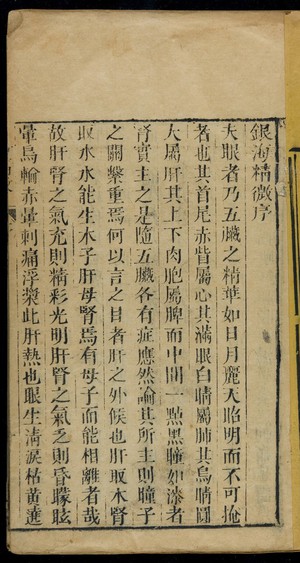 銀海精微序
夫眼者乃五臟之精華如日月麗天昭明而不可掩
者也其首尾赤眥屬心其滿眼白睛屬肺其烏睛圓
大屬肝其上下肉胞屬脾而中間一點黑瞳如漆者
腎實主之是隨五臟各有症應然論其所主則瞳子
之關繫重焉何以言之目者肝之外候也肝取木腎
取水水能生木子肝母腎焉有母子而能相離者哉
故肝腎之氣充則精彩光明肝腎之氣乏則昏矇眩
暈烏輪赤暈刺痛浮漿此肝熱也眼生清淚枯黃遶